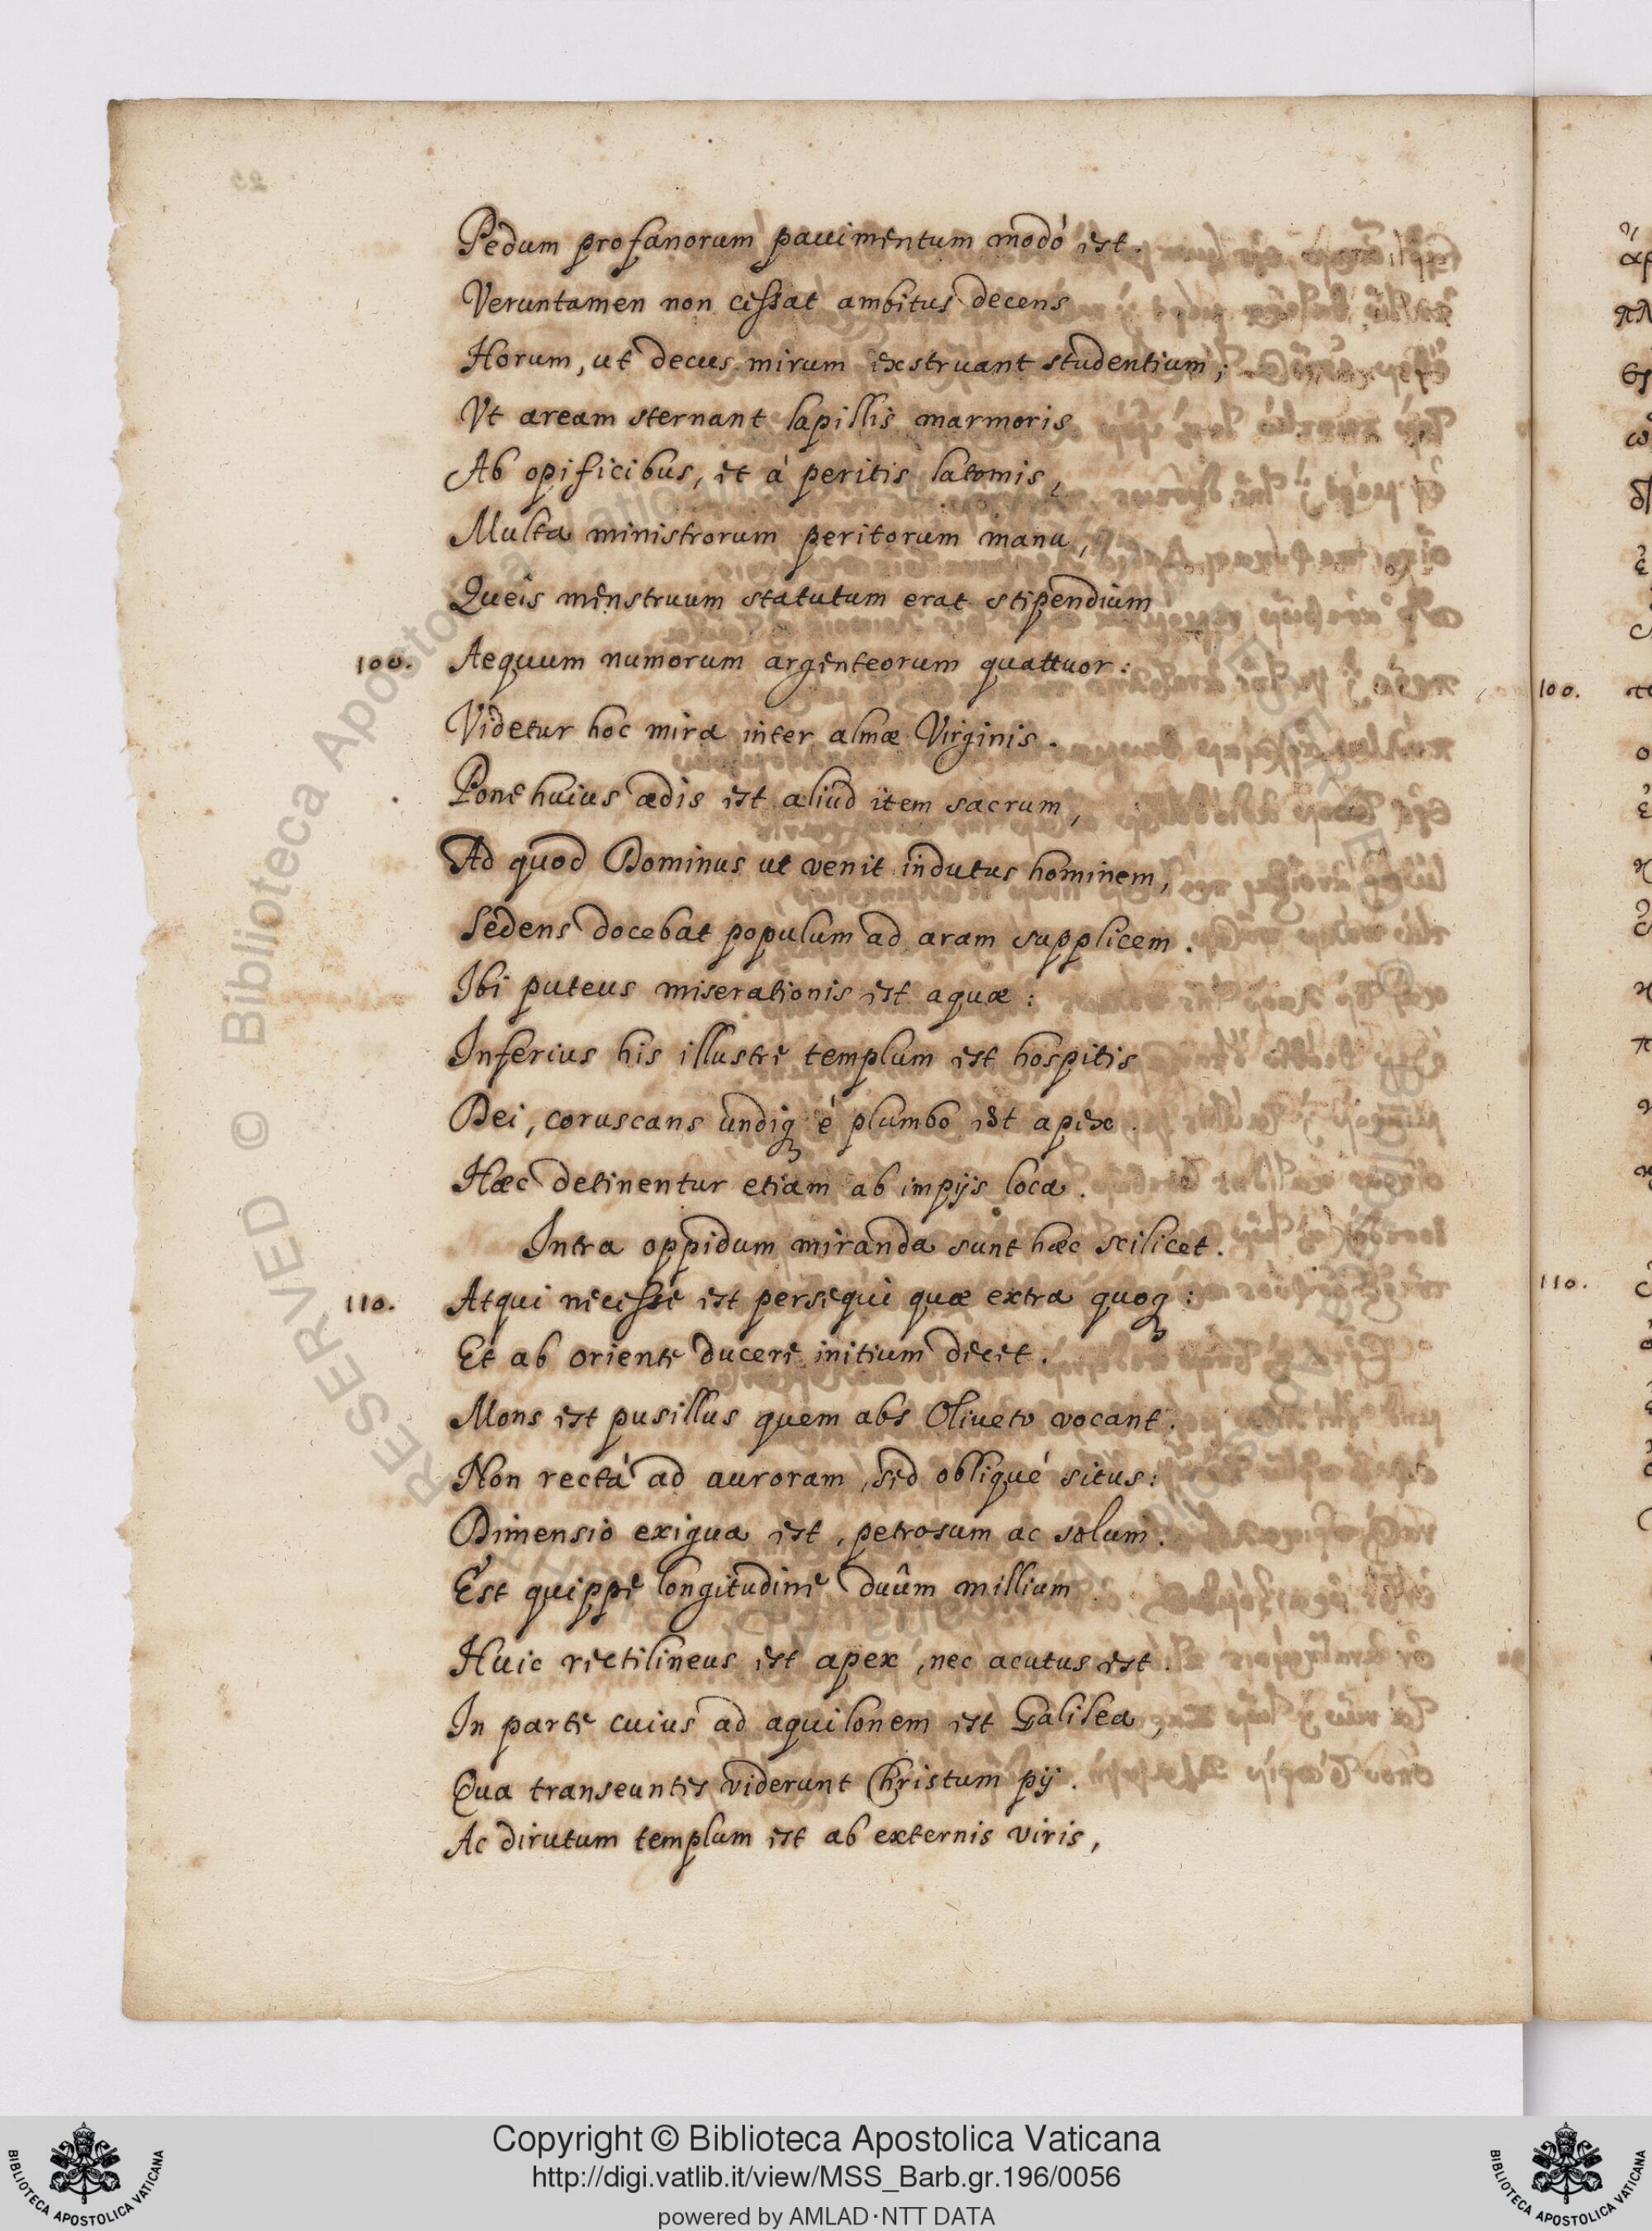 Pedum profanorum pauimentum modó est.
Veruntamen non cessat ambitus decens
Horum, ut decus mirum exstruant studentium;
Vt aream sternant lapillis marmoris
Ab opificibus, et à peritis latomis,
Multa ministrorum peritorum manu,
Queis menstruum statutum erat stipendium
100. Aequum numorum argenteorum quattuor:
Videtur hoc mira inter almæ Virginis.
Pone huius ædis est aliud item sacrum,
Ad quod Dominus ut venit indutus hominem,
Sedens docebat populum ad aram supplicem.
Ibi puteus miserationis est aquæ:
Inferius his illustre templum est hospitis
Dei, coruscans undiq é plumbo est apex.
Hæc detinentur etiam ab impijs loca.
Intra oppidum miranda sunt hæc scilicet.
110. Atqui necesse est persequi quæ extra quoq:
Et ab oriente ducere initium decet.
Mons est pusillus quem abs Oliueto vocant.
Non rectà ad auroram, sed obliqué situs:
Dimensio exigua est, petrosum ac solum.
Est quippe longitudine duûm millium
Huic rectilineus est apex, nec acutus est.
In parte cuius ad aquilonem est Galilea,
Qua transeuntes viderunt Christum pij.
Ac dirutum templum est ab externis viris,
100.
110.
RESERVED © Biblioteca Apostolica Vaticana
Copyright © Biblioteca Apostolica Vaticana
http://digi.vatlib.it/view/MSS_Barb.gr.196/0056
powered by AMLAD·NTT DATA
BIBLIOTECA APOSTOLICA VATICANA
BIBLIOTECA APOSTOLICA VATICANA